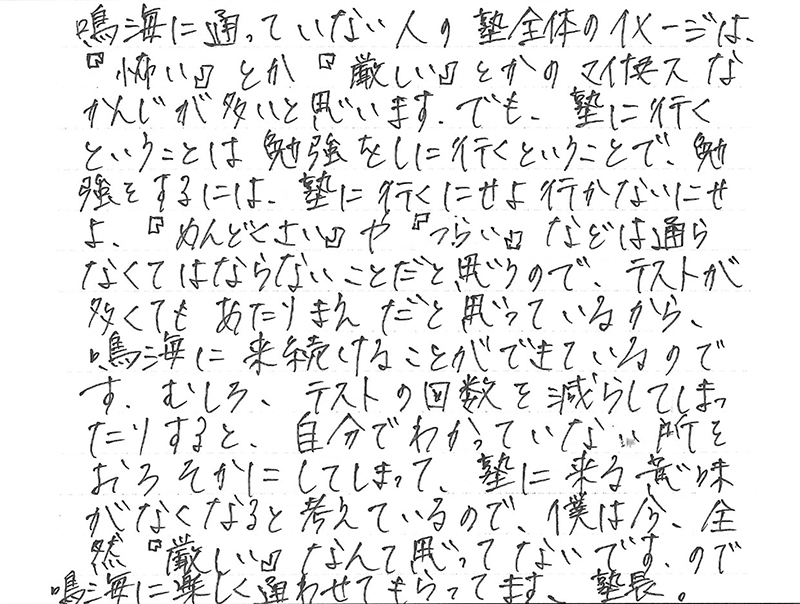 鳴海に通っていない人の塾全体のイメージは、
『怖い』とか『厳しい』とかのマイナスな
かんじが多いと思います。でも、塾に行く
ということは勉強をしに行くということで、勉
強をするには、塾に行くにせよ行かないにせ
よ、『めんどくさい』や『つらい』などは通ら
なくてはならないことだと思うので、テストが
多くてもあたりまえだと思っているから、
鳴海に来続けることができているので
す。むしろ、テストの回数を減らしてしまっ
たりすると、自分でわかっていない所を
おろそかにしてしまって、塾に来る意味
がなくなると考えているので、僕は今、全
然『厳しい』なんて思ってないです。ので
鳴海に楽しく通わせてもらってます、塾長。